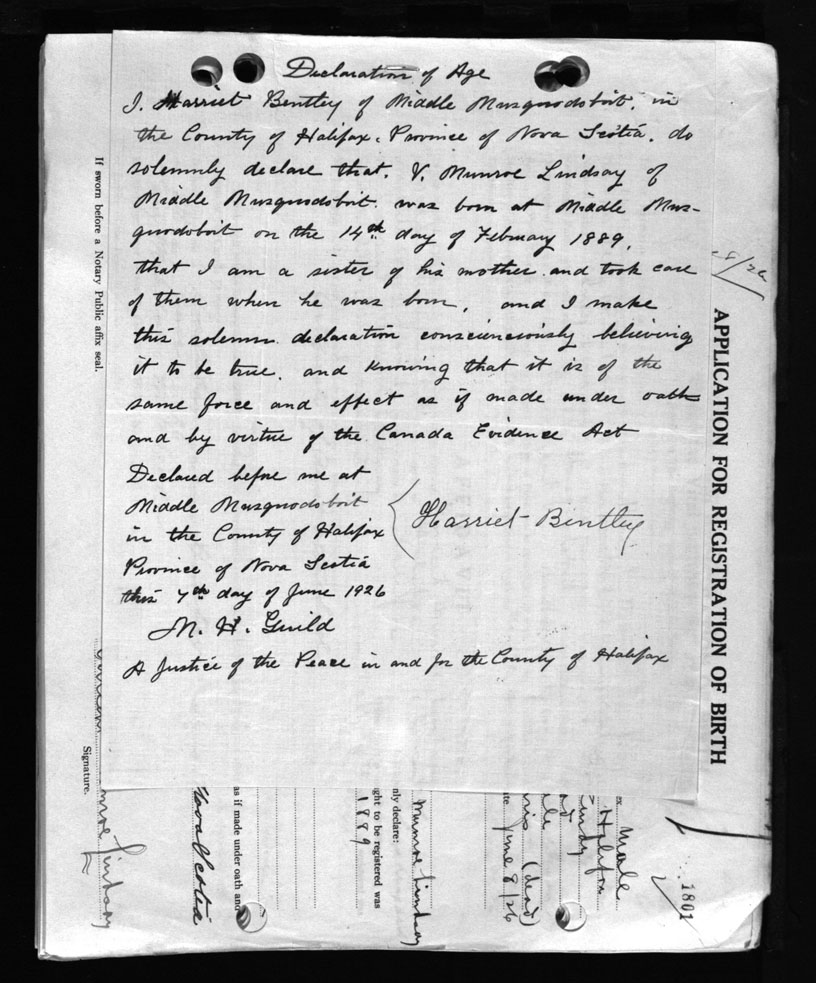 Declaration of Age
I, Harriet Bentley of Middle Musquodoboit, in
the County of Halifax, Province of Nova Scotia, do
solemnly declare that, V. Munroe Lindsay of
Middle Musquodoboit, was born at Middle Mus-
quodoboit on the 14th day of February 1889,
that I am a sister of his mother and took care
of them when he was born, and I make
this solemn declaration conscienciously believing
it to be true, and knowing that it is of the
same force and effect as if made under oath
and by virtue of the Canada Evidence Act
Declared before me at
Middle Musquodoboit
in the County of Halifax
Province of Nova Scotia
this 7th day of June 1926
Harriet Bentley
M. H. Guild
A Justice of the Peace in and for the County of Halifax
If sworn before a Notary Public affix seal.
Signature.
Munroe Lindsay
as if made under oath and
Nova Scotia
ght to be registered was
1889
nly declare:
Munroe Lindsay
ate June 8/26
(dead)
Male
APPLICATION FOR REGISTRATION OF BIRTH
1801